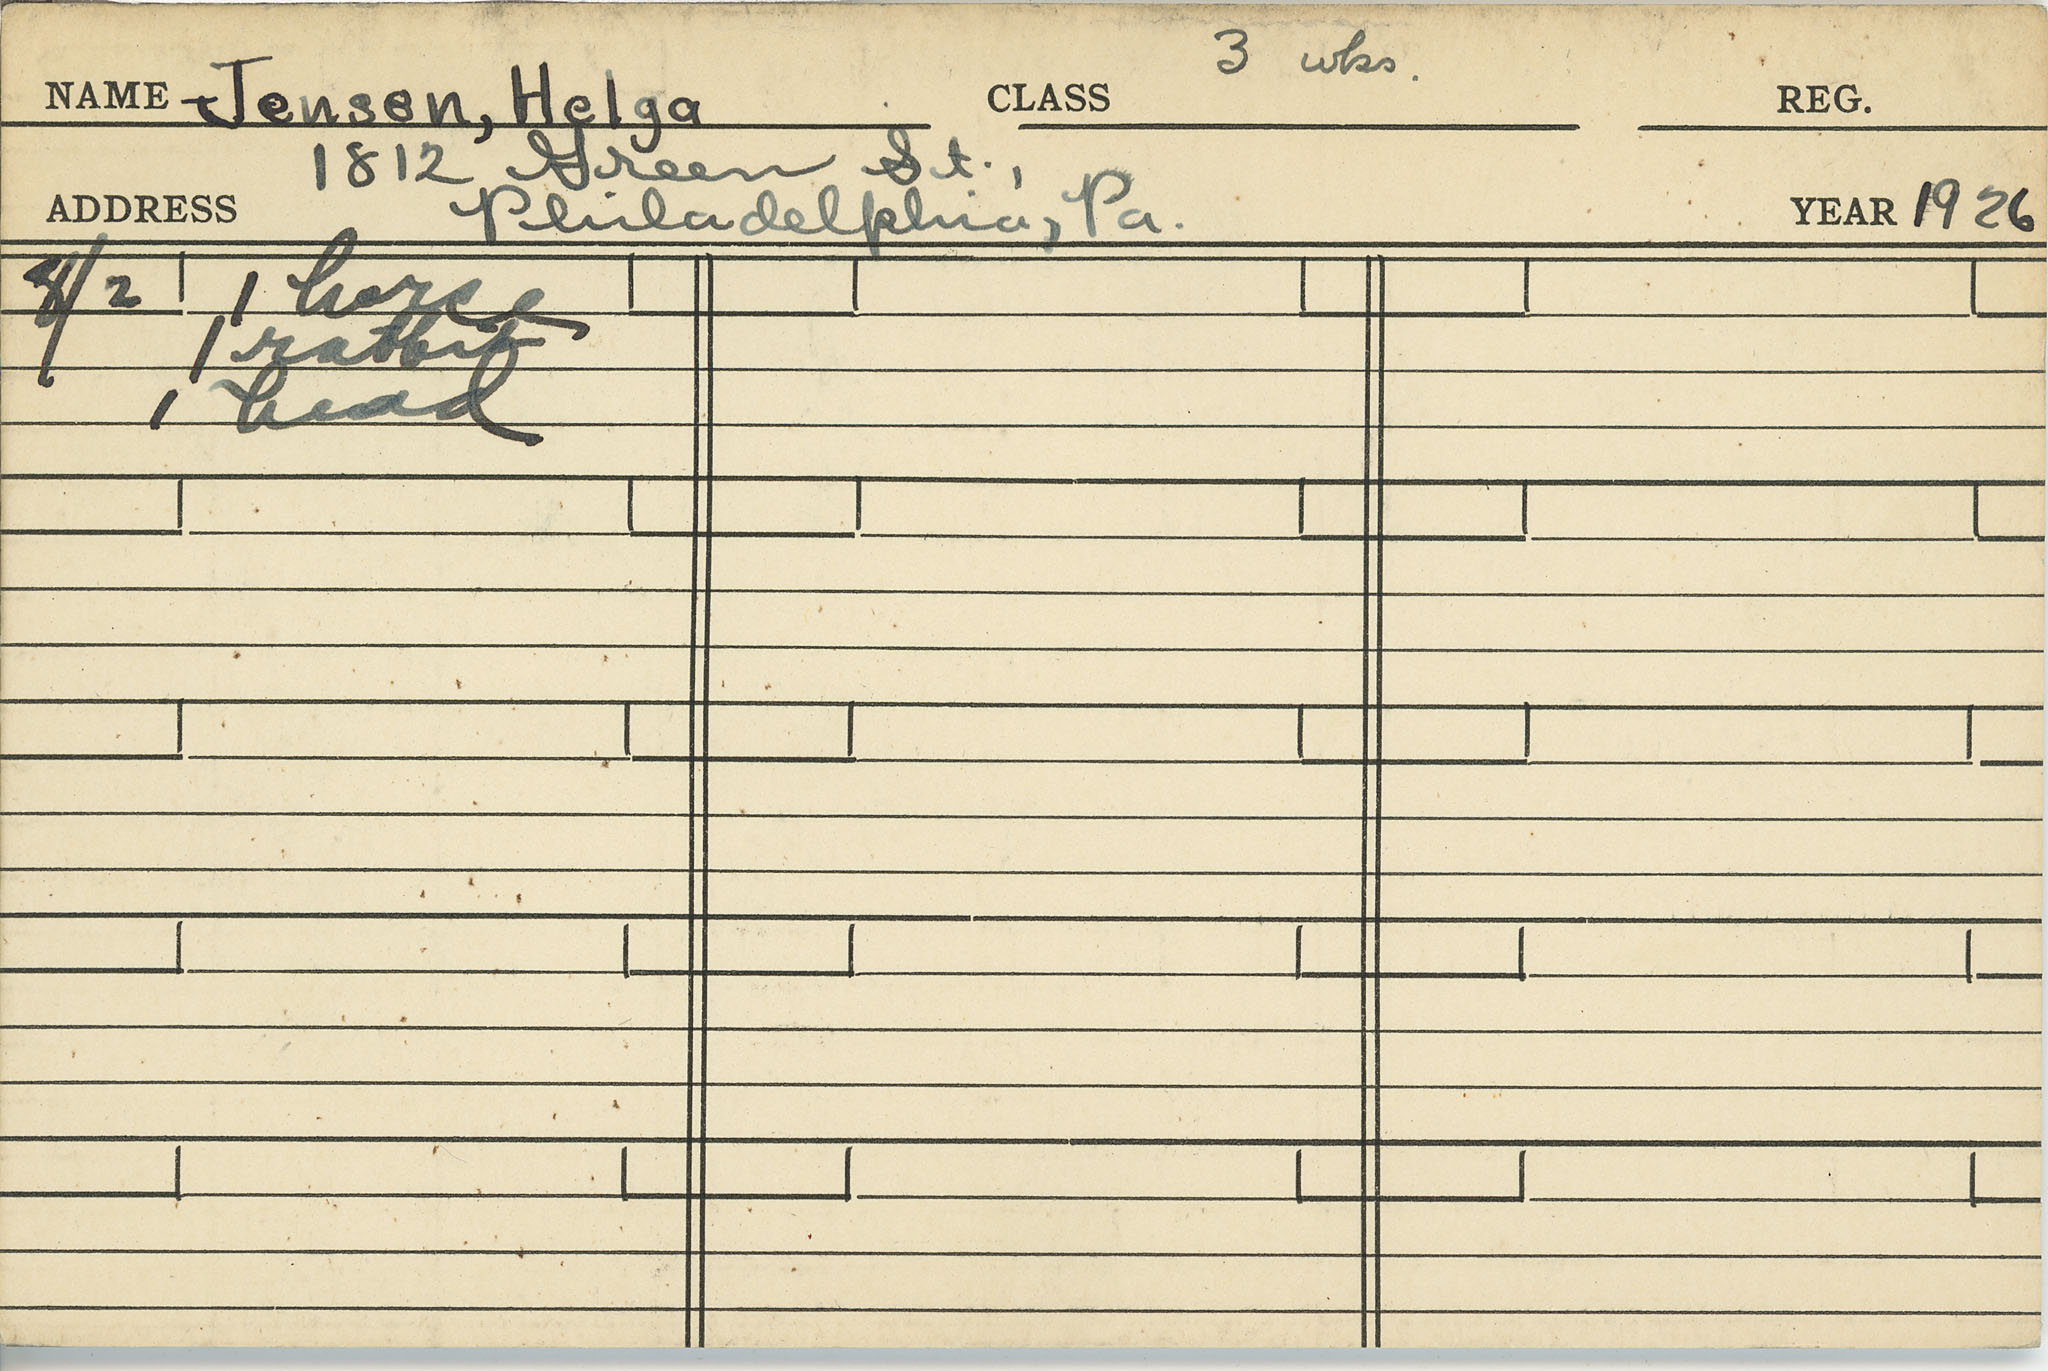 3 wks.
NAME Jensen, Helga CLASS REG.
1812 Green St.,
ADDRESS Philadelphia, Pa. YEAR 1926
8/2 1 horse
1 rabbit
1 head